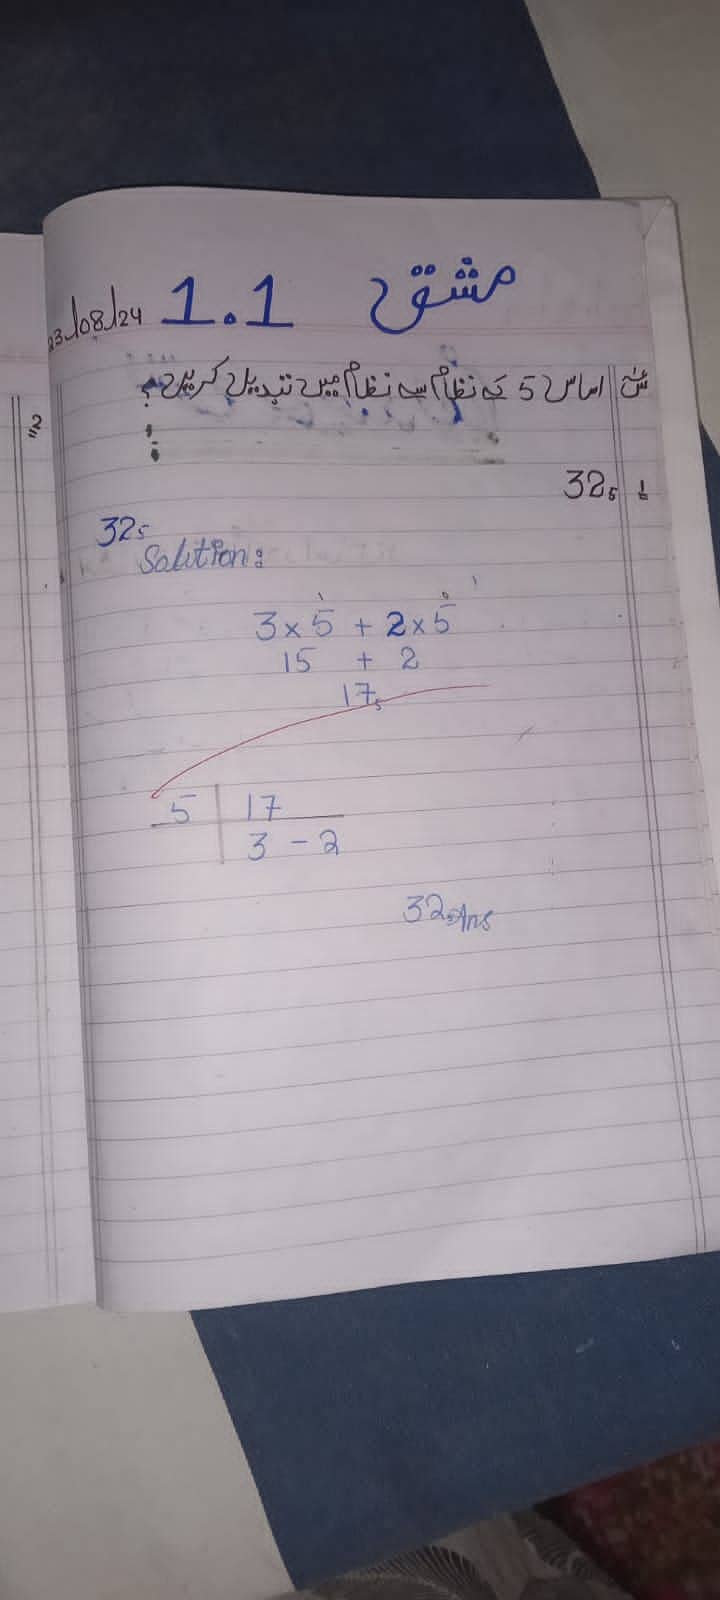 مشق 1.1
23/08/24
س: اساس 5 کے نظام سے نظام میں تبدیل کریں؟
1 32₅
32₅
Solution:
3 × 5¹ + 2 × 5⁰
15 + 2
17₅
5 | 17
3 - 2
32 Ans
2